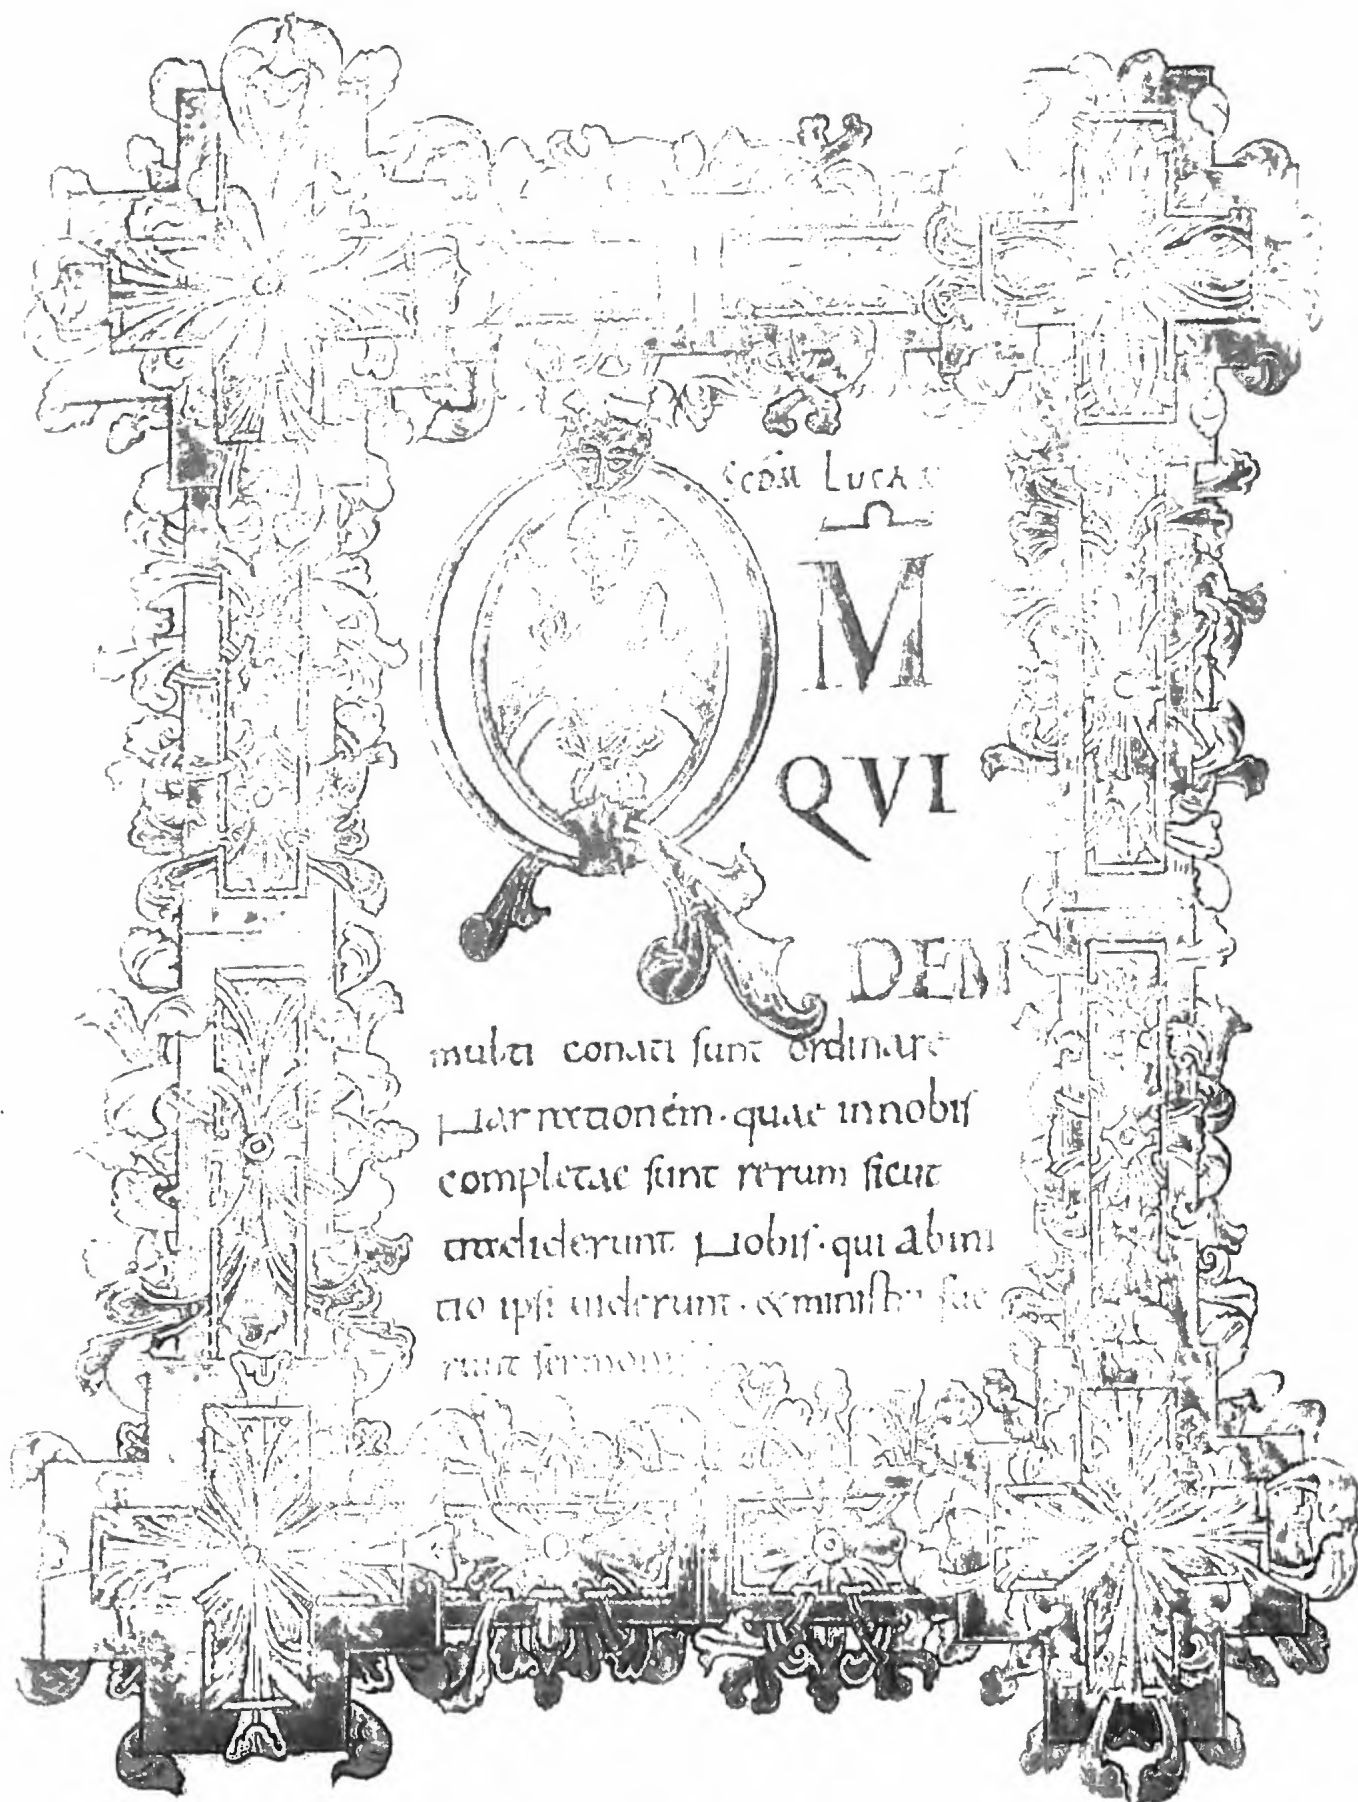 SCDM LUCAM
Q M
QVI
DEM
multi conati sunt ordinare
Narrationem · quae innobis
completae sunt rerum sicut
tradiderunt Nobis · qui abini
tio ipsi uiderunt · & ministri fue
runt sermonis